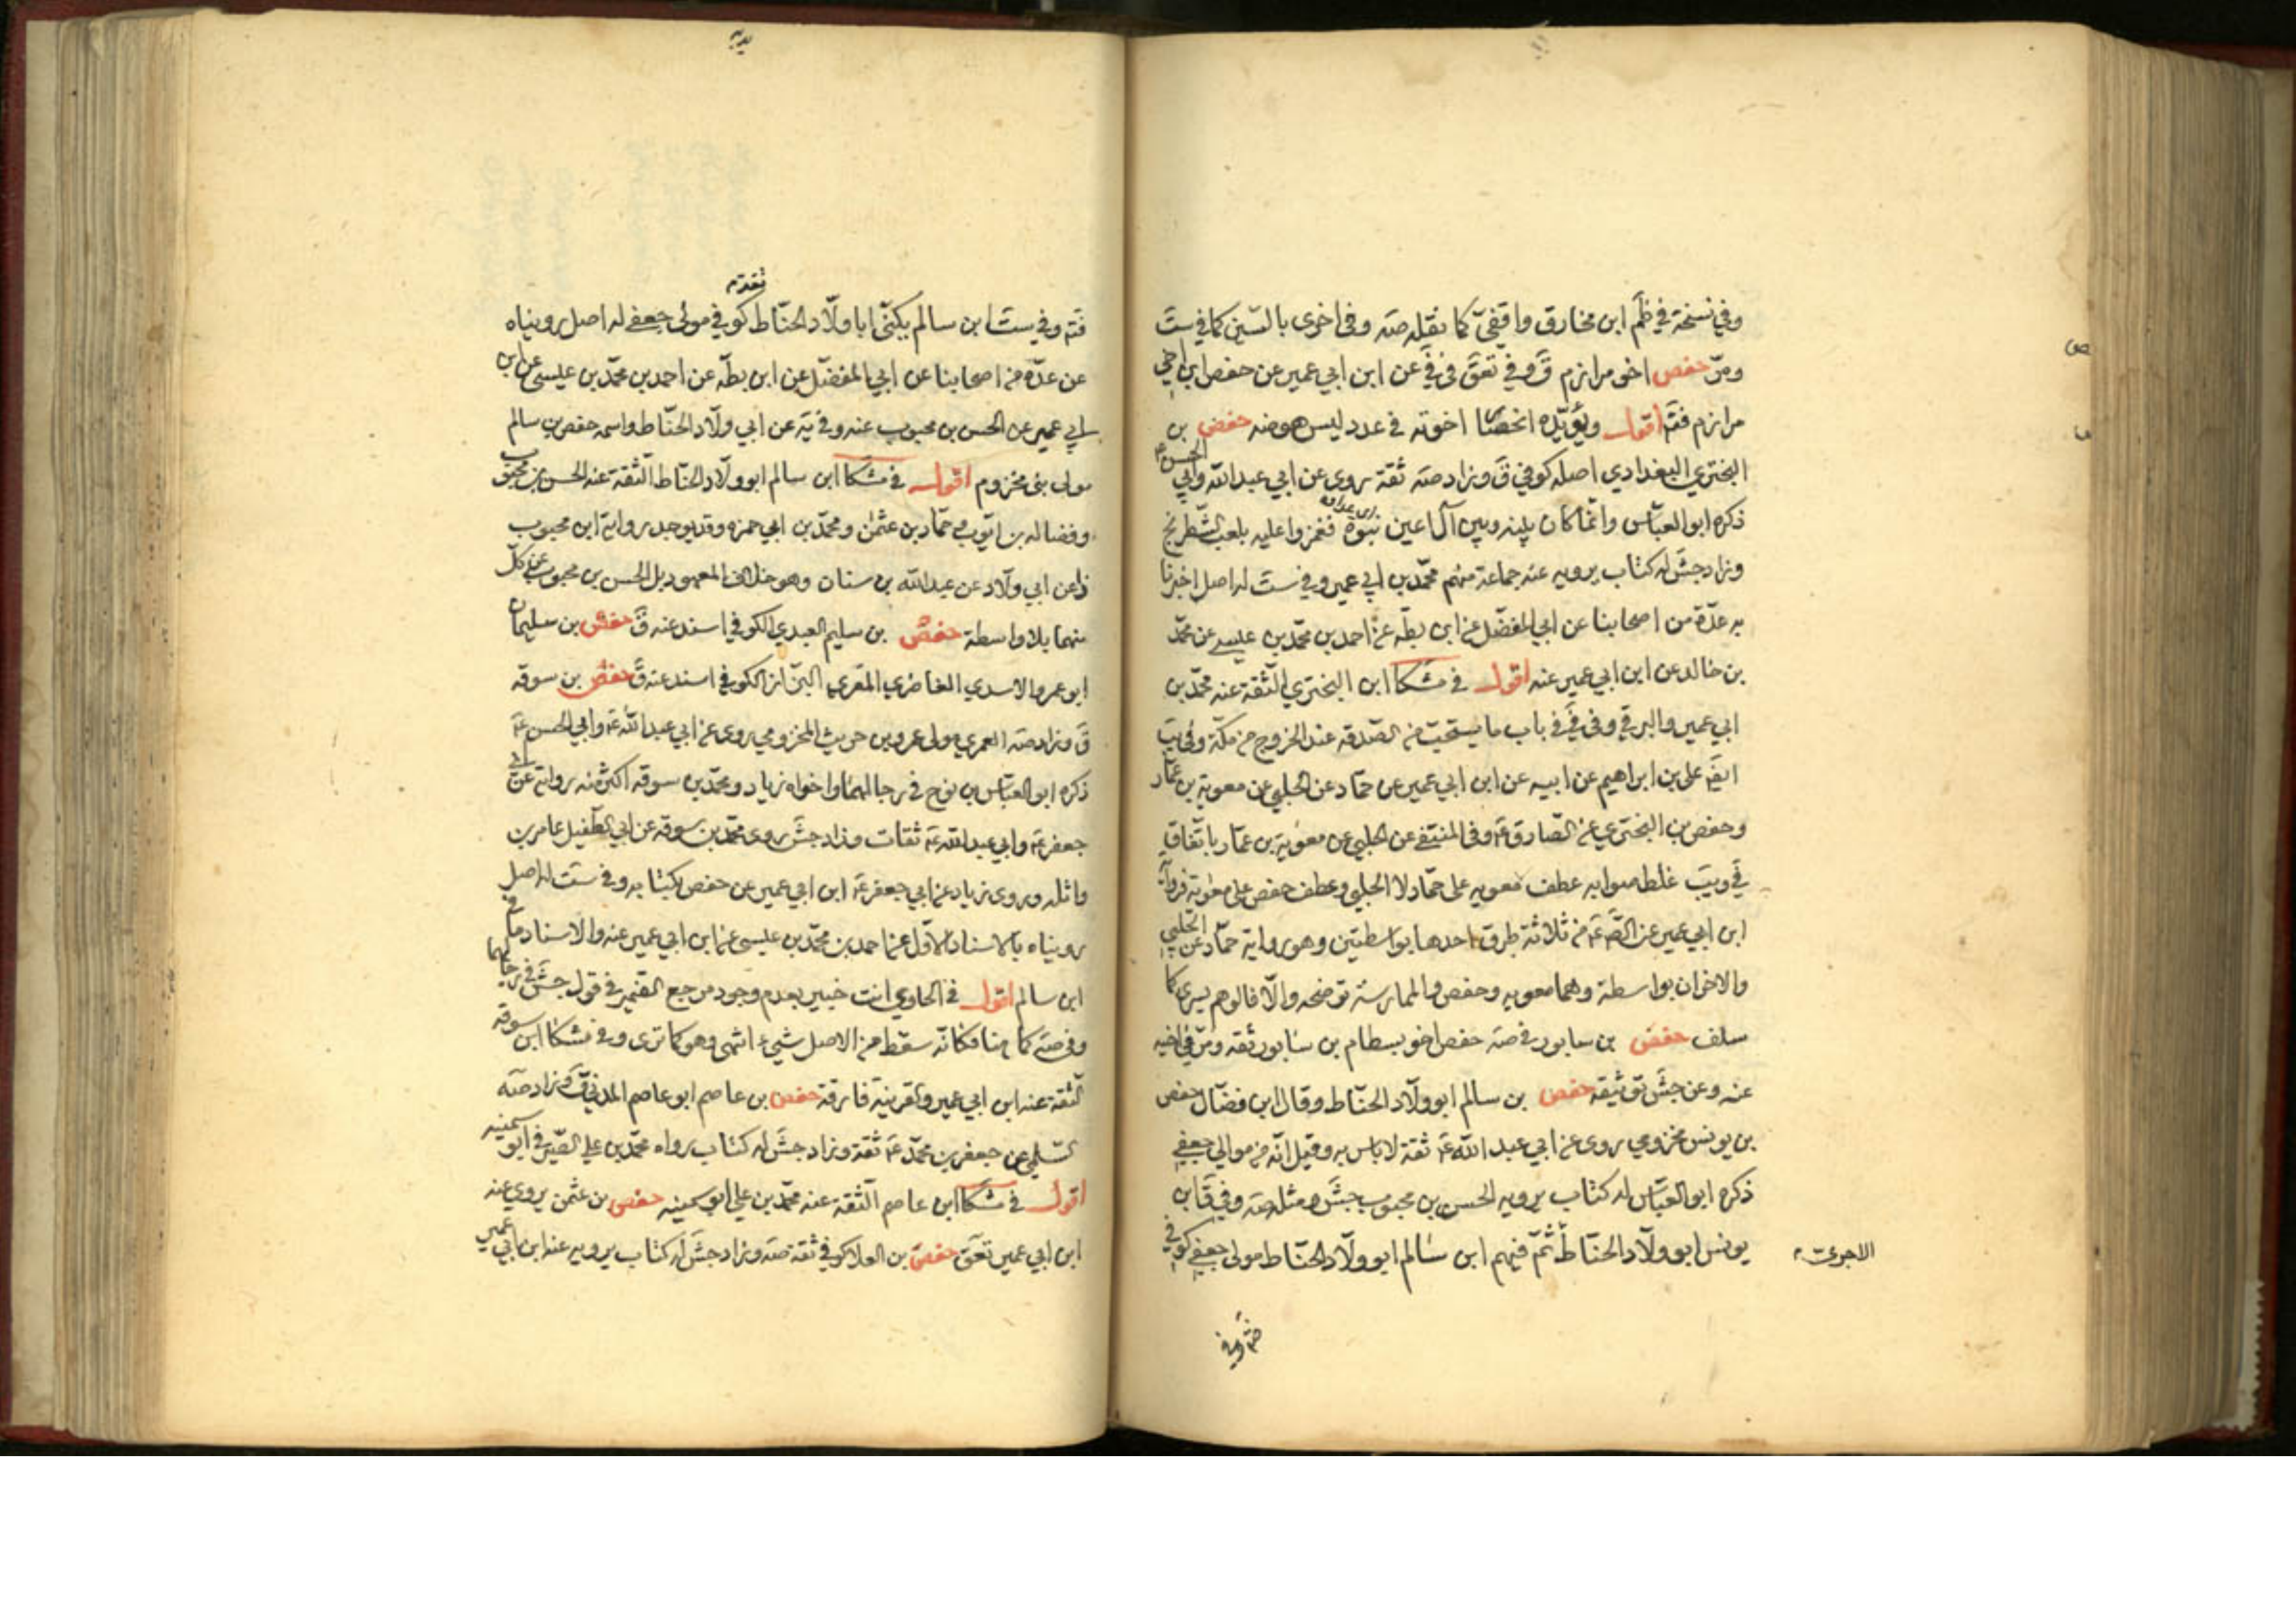 وفي نسخة في ظم ابن مخارق واقفي كما نقله صه وفي اخرى بالسين كما في ست
ومر حفص اخو مرازم ق وفي تعق في في عن ابن ابي عمير عن حفص ابن اخي
مرازم فتم اقول ويؤيده انحصار اخوته في عدد ليس هو منه حفص بن
البختري البغدادي اصله كوفي ق وزاد صه ثقة روى عن ابي عبد الله وابي الحسن ع
ذكره ابو العباس وانما كان بينه وبين آل اعين نبوة فغمزوا عليه بلعب الشطرنج
وزاد جش له كتاب يرويه عنه جماعة منهم محمد بن ابي عمير وفي ست له اصل اخبرنا
به عدة من اصحابنا عن ابي المفضل عن ابن بطه عن احمد بن محمد بن عيسى عن محمد
بن خالد عن ابن ابي عمير عنه اقول في مشكا ابن البختري الثقة عنه محمد بن
ابي عمير والبرقي وفي في في باب ما يستحب من الصدقة عند الخروج من مكة وفي يب
ايضا علي بن ابراهيم عن ابيه عن ابن ابي عمير عن حماد عن الحلبي عن معوية بن عمار
وحفص بن البختري عن الصادق ع وفي المنتقى عن الحلبي عن معوية بن عمار باتفاق
في ويب غلط صوابه عطف معويه على حماد لا الحلبي وعطف حفص على معوية فرواية
ابن ابي عمير عن الص ع من ثلاثة طرق احدها بواسطتين وهو رواية حماد عن الحلبي
والاخران بواسطة وهما معويه وحفص والممارسة توضحه والا فالوهم يسرى كما
سلف حفص بن سابور في صه حفص اخو بسطام بن سابور ثقه ومر في اخيه
عنه وعن جش توثيقه حفص بن سالم ابو ولاد الحناط وقال ابن فضال حفص
بن يونس مخزومي روى عن ابي عبد الله ع ثقة لا باس به وقيل انه من موالي جعفي
ذكره ابو العباس له كتاب يرويه الحسن بن محبوب جش ومثله صه وفي ق ابن
يونس ابو ولاد الحناط ثم فيهم ابن سالم ابو ولاد الحناط مولى جعفي كوفي
الاجرى
فتم وفي ست ابن سالم يكنى ابا ولاد الحناط كوفي مولى جعفي له اصل رويناه
عن عدة من اصحابنا عن ابي المفضل عن ابن بطه عن احمد بن محمد بن عيسى عن ابن
ابي عمير عن الحسن بن محبوب عنه وفي يه عن ابي ولاد الحناط واسمه حفص بن سالم
مولى بني مخزوم اقول في مشكا ابن سالم ابو ولاد الحناط الثقة عنه الحسن بن محبوب
وفضاله بن ايوب وحماد بن عثمن ومحمد بن ابي حمزه وقد يوجد رواية ابن محبوب
ذا عن ابي ولاد عن عبد الله بن سنان وهو خلاف المعهود بل الحسن بن محبوب عن كل
منهما بلا واسطة حفص بن سليم العبدي الكوفي اسند عنه ق حفص بن سليمان
ابو عمرو الاسدي الغاضري المقري البزاز الكوفي اسند عنه ق حفص بن سوقه
ق وزاد صه العمري مولى عمرو بن حريث المخزومي روى عن ابي عبد الله ع وابي الحسن ع
ذكره ابو العباس بن نوح في رجالهما واخواه زياد ومحمد بن سوقه اكثر منه رواية عن ابي
جعفر ع وابي عبد الله ع ثقات وزاد جش روى محمد بن سوقه عن ابي الطفيل عامر بن
واثله وروى زياد عن ابي جعفر ع ابن ابي عمير عن حفص بكتابه وفي ست له اصل
رويناه بالاسناد الاول عن احمد بن محمد بن عيسى عن ابن ابي عمير عنه والاسناد ما في
ابن سالم اقول في الحاوي انت خبير بعدم وجود مرجع الضمير في قول جش في رجالهما
وفي صه كما هنا فكانه سقط من الاصل شيء انتهى وهو كما ترى وفي مشكا ابن سوقه
الثقة عنه ابن ابي عمير والقرينة فارقة حفص بن عاصم ابو عاصم المدني ق وزاد صه
السلمي عن جعفر بن محمد ع ثقة وزاد جش له كتاب رواه محمد بن علي الصيرفي ابو سمينه
اقول في مشكا ابن عاصم الثقة عنه محمد بن علي ابو سمينه حفص بن عثمن يروي عنه
ابن ابي عمير تعق حفص بن العلا كوفي ثقة صه وزاد جش له كتاب يرويه عنه ابن ابي عمير